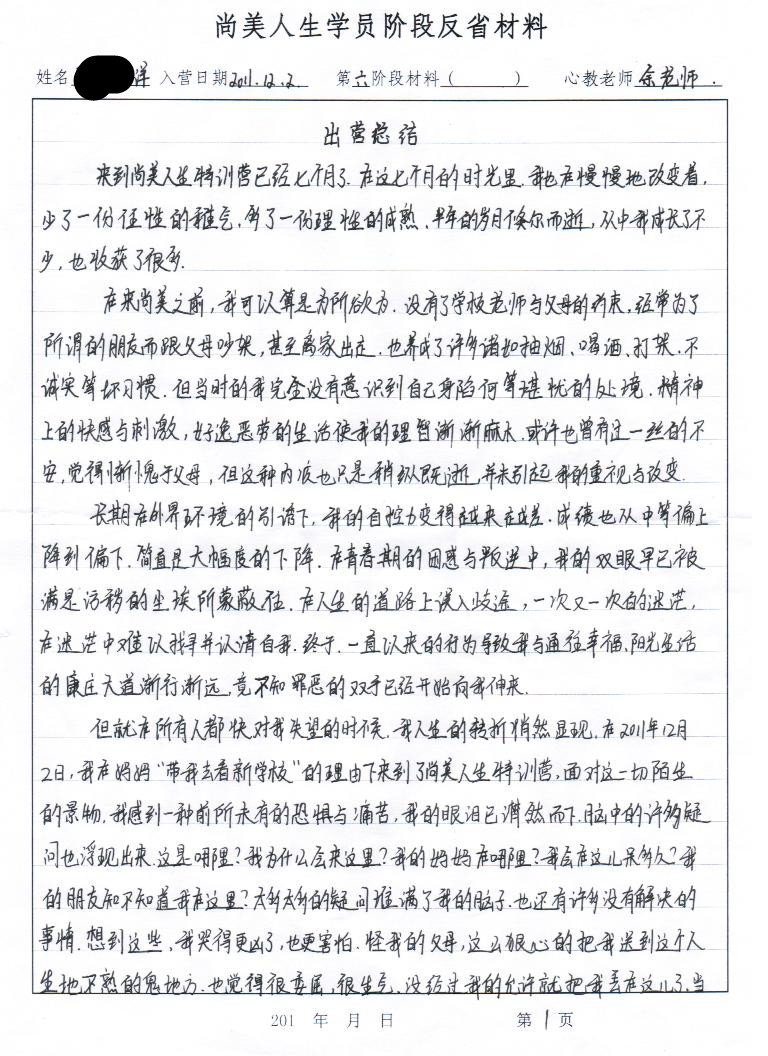 尚美人生学员阶段反省材料
姓名 洋 入营日期2011.12.2 第六阶段材料( ) 心教老师 余老师.
出营总结
来到尚美人生特训营已经七个月了.在这七个月的时光里.我也在慢慢地改变着,
少了一份任性的稚气,多了一份理性的成熟、半年的岁月倏尔而逝,从中我成长了不
少,也收获了很多.
在来尚美之前,我可以算是为所欲为.没有了学校老师与父母的约束,经常为了
所谓的朋友而跟父母吵架,甚至离家出走.也养成了许多诸如抽烟、喝酒、打架、不
诚实等坏习惯.但当时的我完全没有意识到自己身陷何等堪忧的处境.精神
上的快感与刺激,好逸恶劳的生活使我的理智渐渐麻木.或许也曾有过一丝的不
安,觉得惭愧于父母,但这种内疚也只是稍纵既逝,并未引起我的重视与改变.
长期在外界环境的引诱下,我的自控力变得越来越差.成绩也从中等偏上
降到偏下.简直是大幅度的下降.在青春期的困惑与叛逆中,我的双眼早已被
满是污秽的尘埃所蒙蔽住.在人生的道路上误入歧途,一次又一次的迷茫,
在迷茫中难以找寻并认清自我.终于.一直以来的行为导致我与通往幸福、阳光生活
的康庄大道渐行渐远,竟不知罪恶的双手已经开始向我伸来.
但就在所有人都快对我失望的时候.我人生的转折悄然显现.在2011年12月
2日,我在妈妈“带我去看新学校”的理由下来到了尚美人生特训营,面对这一切陌生
的景物.我感到一种前所未有的恐惧与痛苦,我的眼泪已潸然而下.脑中的许多疑
问也浮现出来.这是哪里?我为什么会来这里?我的妈妈在哪里?我会在这儿呆多久?我
的朋友知不知道我在这里?太多太多的疑问堆满了我的脑子.也还有许多没有解决的
事情.想到这些,我哭得更凶了,也更害怕.怪我的父母,这么狠心的把我送到这个人
生地不熟的鬼地方.也觉得很委屈,很生气.没经过我的允许就把我丢在这儿了.当
201 年 月 日 第 1 页